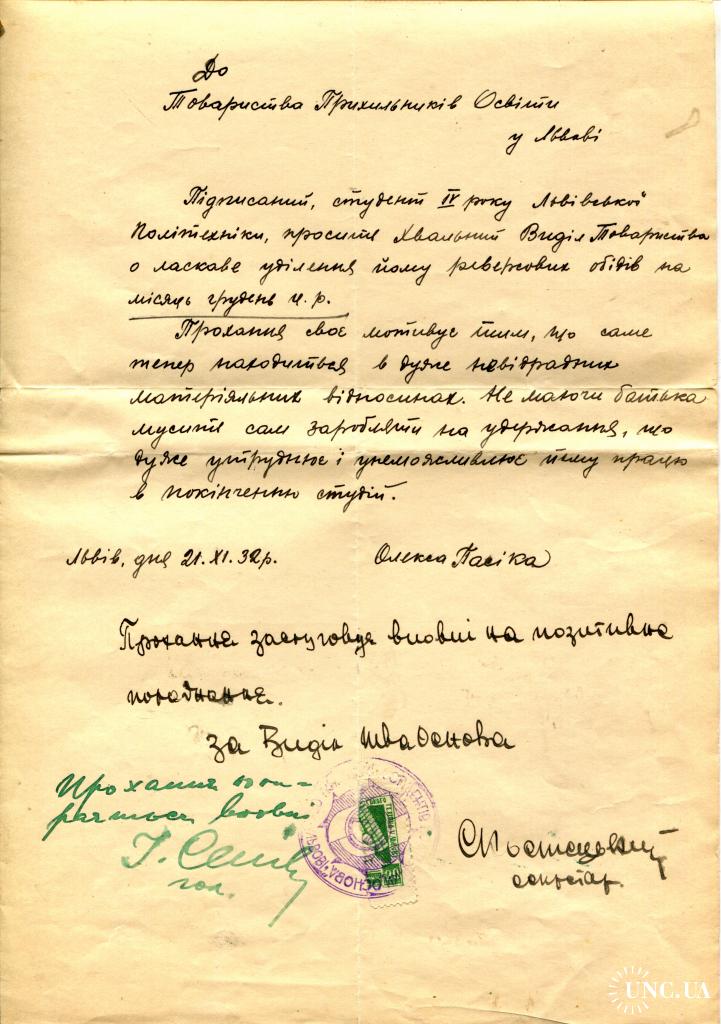 До
Товариства Прихильників Освіти
у Львові
Підписаний, студент IV року Львівської
Політехніки, просить Хвальний Виділ Товариства
о ласкаве уділення йому реверсових обідів на
місяць грудень ц.р.
Прохання своє мотивує тим, що саме
тепер находиться в дуже невідрадних
матеріяльних відносинах. Не маючи батька
мусить сам заробляти на удержання, що
дуже утруднює і унеможливлює йому працю
в покінченню студій.
Львів, дня 21.XI.32р.
Олекса Пасіка
Прохання заслуговує вповні на позитивне
за Виділ тва Основа
Прохання попи-
рається вповні
гол.
секретар.
ОСНОВА
UNC.UA